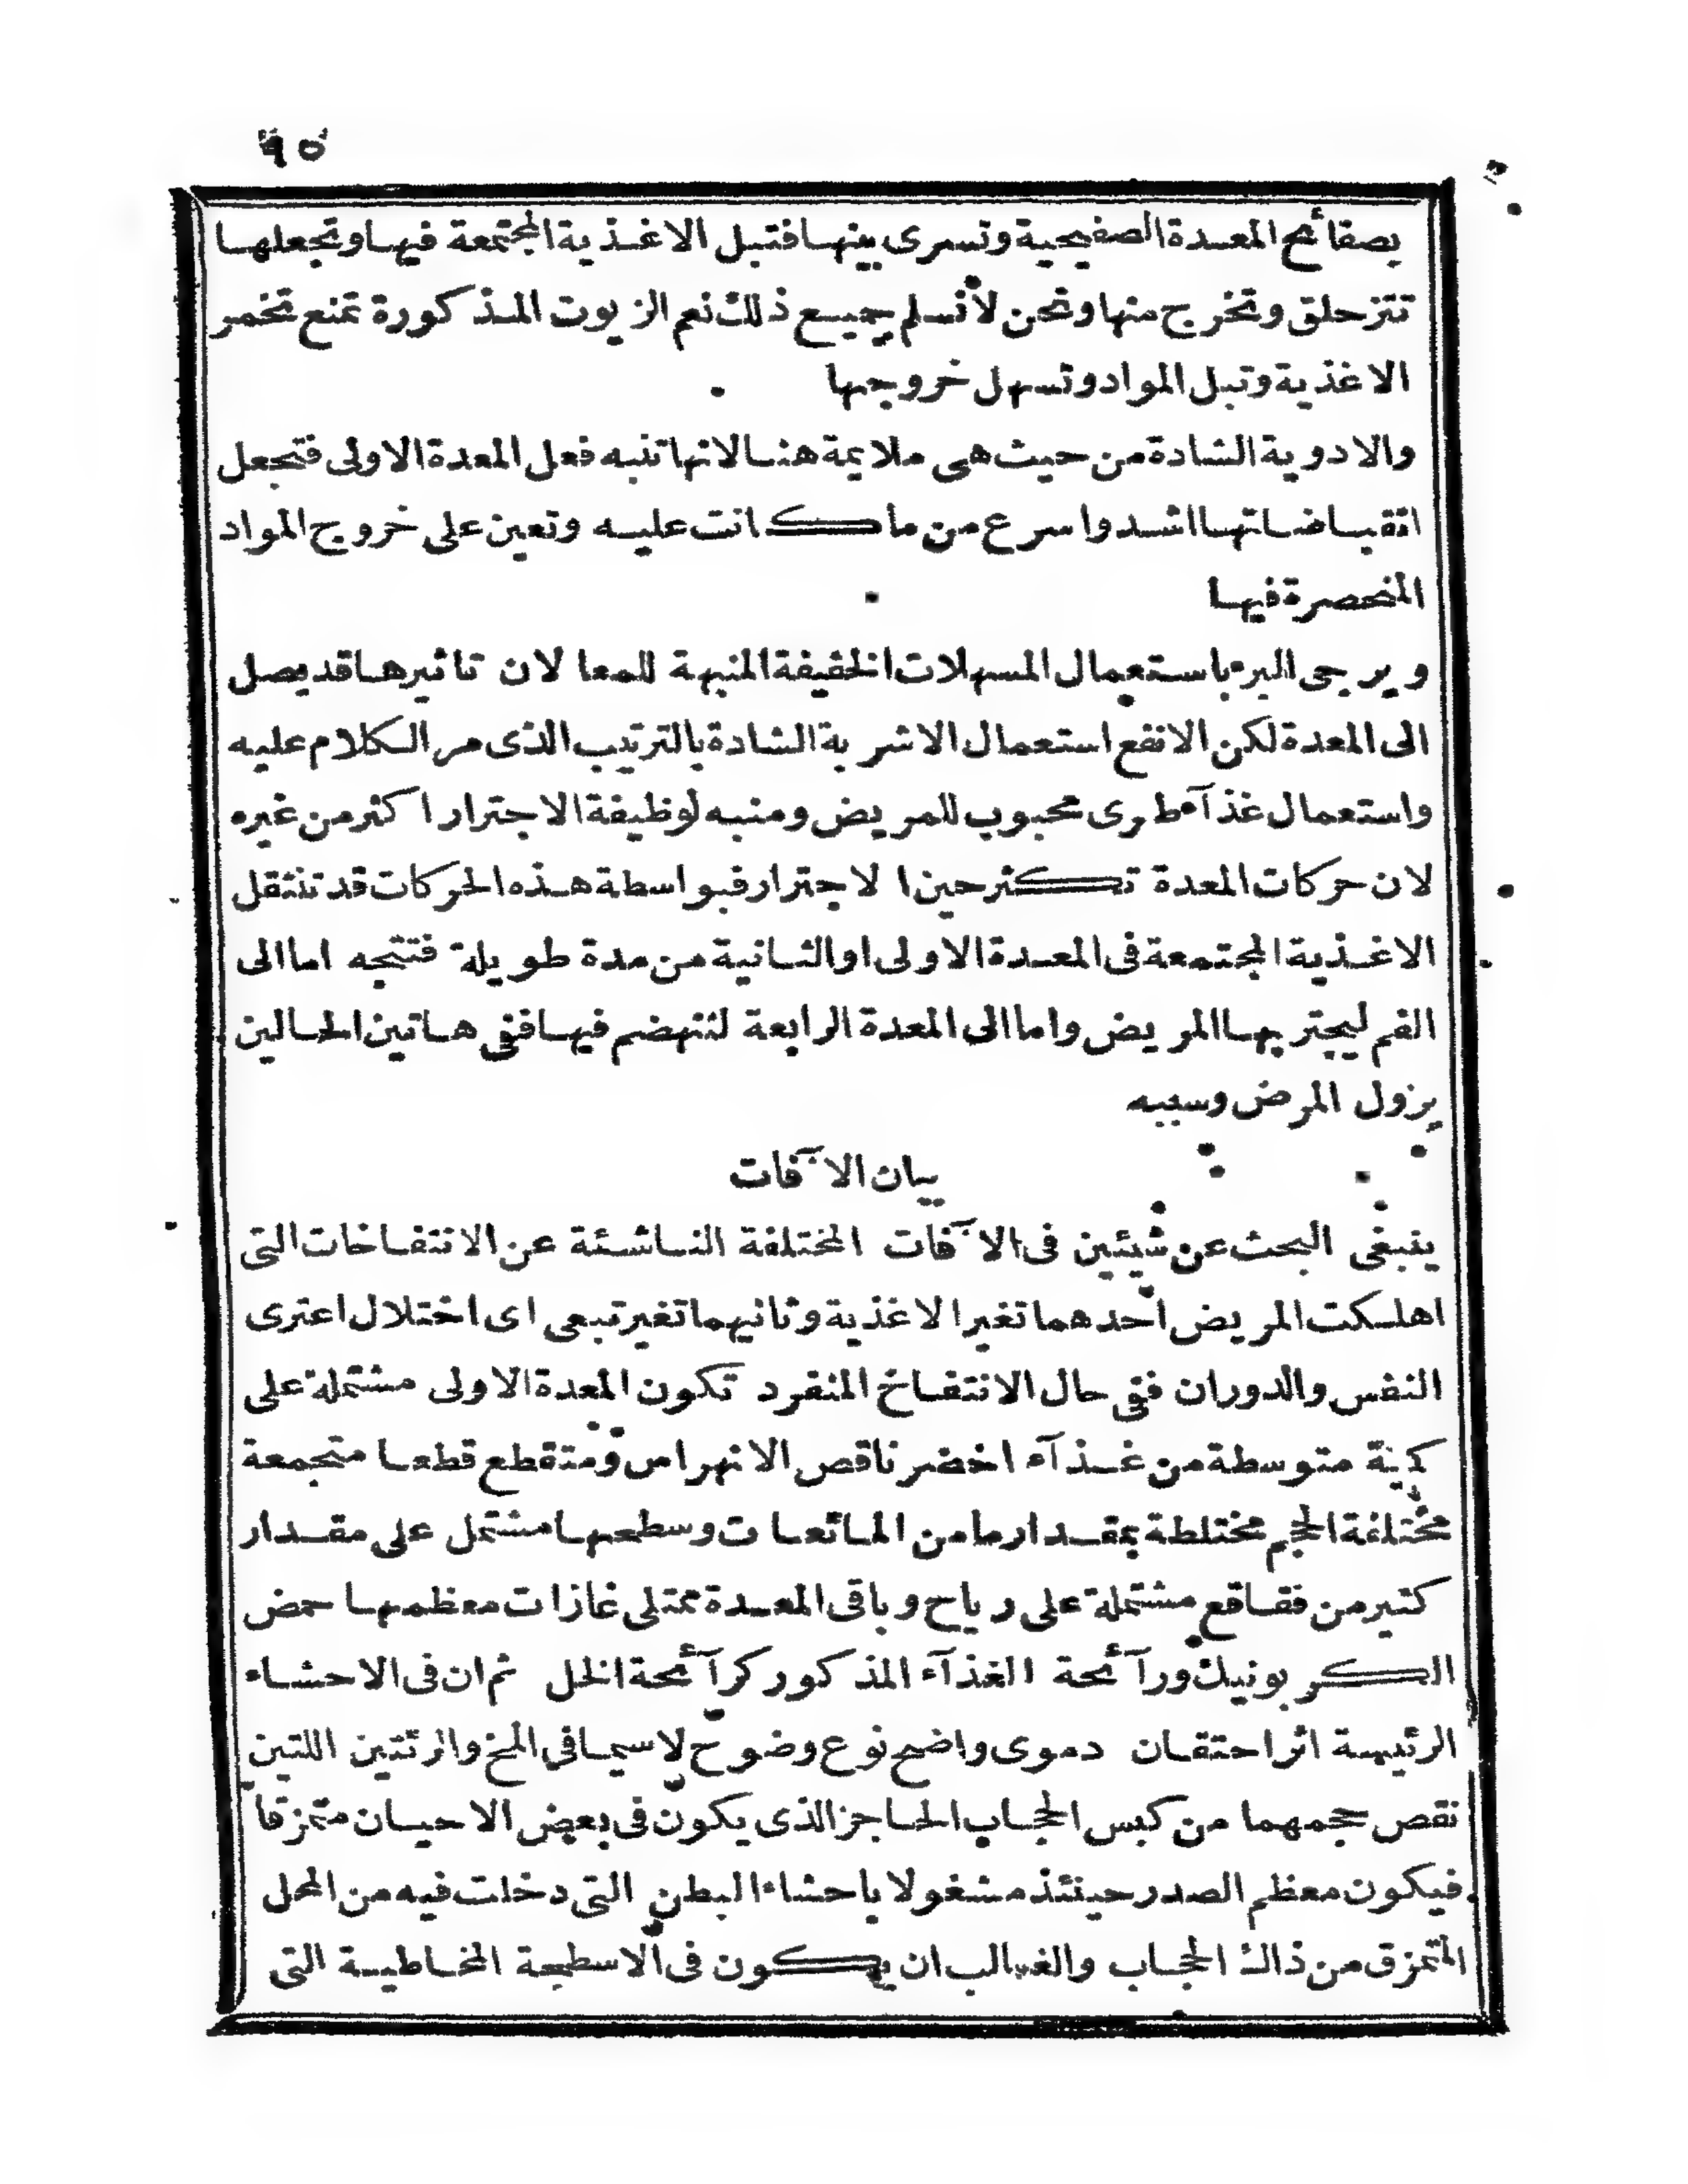 ٩٥
بصفائح المعدة الصفيحية وتسرى بينها فتبل الاغذية المجتمعة فيها وتجعلها
تتزحلق وتخرج منها ونحن لا نسلم جميع ذلك نعم الزيوت المذكورة تمنع تخمر
الاغذية وتبل المواد وتسهل خروجها
والادوية الشادة من حيث هى ملايمة هنا لانها تنبه فعل المعدة الاولى فتجعل
انقباضاتها اشد واسرع من ما كانت عليه وتعين على خروج المواد
المنحصرة فيها
ويرجى البرء باستعمال المسهلات الخفيفة المنبهة للمعا لان تاثيرها قد يصل
الى المعدة لكن الانفع استعمال الاشربة الشادة بالترتيب الذى مر الكلام عليه
واستعمال غذآء طرى محبوب للمريض ومنبه لوظيفة الاجترار اكثر من غيره
لان حركات المعدة تكثر حين الاجترار فبواسطة هذه الحركات قد تنتقل
الاغذية المجتمعة فى المعدة الاولى او الثانية من مدة طويلة فتتجه اما الى
الفم ليجتر بها المريض واما الى المعدة الرابعة لتنهضم فيها ففى هاتين الحالين
يزول المرض وسببه
بيان الآفات
ينبغى البحث عن شيئين فى الآفات المختلفة الناشئة عن الانتفاخات التى
اهلكت المريض احدهما تغير الاغذية وثانيهما تغير تبعى اى اختلال اعترى
النفس والدوران ففى حال الانتفاخ المنفرد تكون المعدة الاولى مشتملة على
كمية متوسطة من غذآء اخضر ناقص الانهراس ومتقطع قطعا متجمعة
مختلفة الحجم مختلطة بمقدار ما من المائعات وسطحها مشتمل على مقدار
كثير من فقاقع مشتملة على رياح وباقى المعدة ممتلى غازات معظمها حمض
الكربونيك ورآئحة الغذآء المذكور كرآئحة الخل ثم ان فى الاحشاء
الرئيسة اثر احتقان دموى واضح نوع وضوح لاسيما فى المخ والرئتين اللتين
نقص حجمهما من كبس الحجاب الحاجز الذى يكون فى بعض الاحيان متمزقا
فيكون معظم الصدر حينئذ مشغولا باحشاء البطن التى دخلت فيه من المحل
المتمزق من ذاك الحجاب والغالب ان يكون فى الاسطحة المخاطية التى